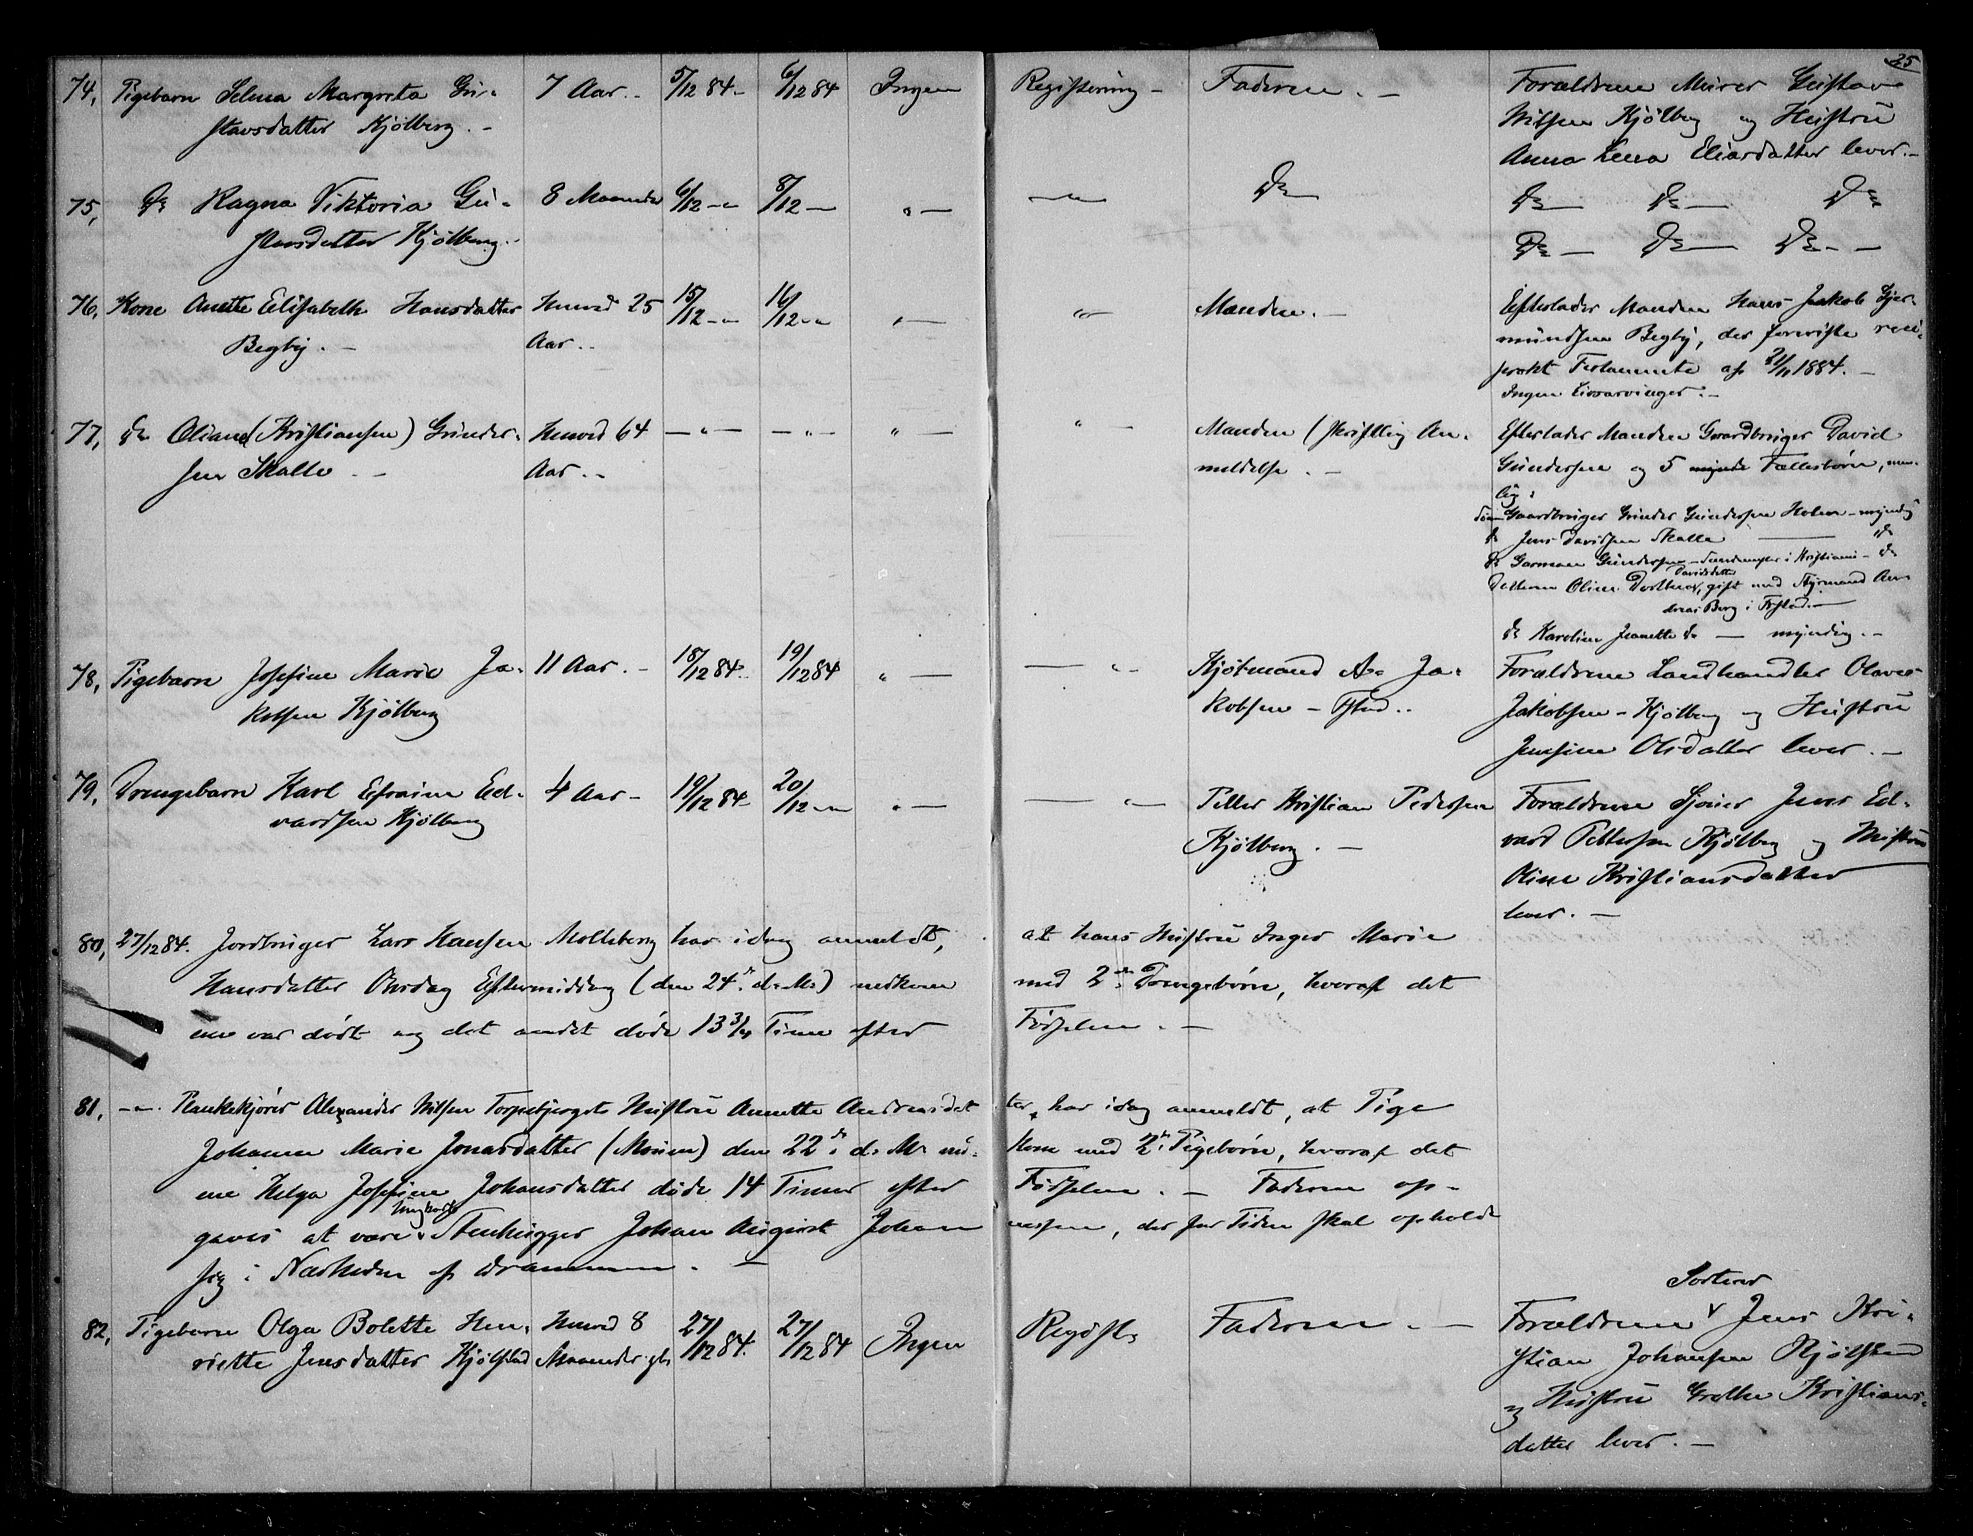 25
74, Pigebarn Selma Margreta Gu- 7 Aar.. 5/12 84- 6/12 84 Ingen Registrering - Faderen. - Forældrene Murer Gustav
stavsdatter Kjølberg. - Nilsen Kjølberg og Hustru
Anna Lena Eliasdatter lever.-
75, do Ragna Viktoria Gu- 8 Maaneder 6/12 -"- 8/12 - " - -"- do do - do - do
stavsdatter Kjølberg.- do - do - do - -
76, Kone Anette Elisabeth Hansdatter Henved 25 15/12 -"- 16/12 -"- " - -"- Manden. - Efterlader Manden Hans Jakob Gjer-
Begby. - Aar.. mundsen Begby, der foreviste reci-
prokt Testamente af 21/11 1884. -
Ingen Livsarvinger.-
77, do Oliane (Kristiansen) Gunder- Henved 64 -"- -"- " - " - Manden (skriftlig An- Efterlader Manden Gaardbruger David
sen Skalle - Aar.. meldelse. - Gundersen og 5 myndige Fællesbørn, nem-
lig:
Søn Gaardbruger Gunder Gundersen Holm - myndig
do Jens Davidsen Skalle - do
do Herman Gundersen - i Kristiania - do
Davidsdatter
Datteren Oline Dorthea, gift med Styrmand An-
dreas Berg i Fstad. -
do Karoline Jeanette do - myndig. -
78, Pigebarn Josefine Marie Ja- 11 Aar. - 18/12 84. 19/12 84 " - - "- Kjøbmand A. Ja- Forældrene Landhandler Olaves
kobsen Kjølberg kobsen - Fstad.. Jakobsen - Kjølberg og Hustru
Jensine Olsdatter lever. -
79, Drengebarn Karl Efraim Ed- 4 Aar - 19/12 84- 20/12 -"- " - - " - Petter Kristian Pedersen Forældrene Jens Ed-
vardsen Kjølberg Kjølberg. - vard Pettersen Kjølberg og Hustru
Oline Kristiansdatter
lever. -
80, 27/12 84. Jordbruger Lars Hansen Molteberg har idag anmeldt, at hans Hustru Inger Marie
Hansdatter Onsdag Eftermiddag (den 24de d. M.) nedkom med 2de Drengebørn, hvoraf det
ene var dødt og det andet døde 13 3/4 Time efter Fødselen. -
81, -"- Plankekjører Alexander Nilsen Torpebjergets Hustru Annette Andreasdat ter, har idag anmeldt, at Pige
Johanne Marie Jonasdatter (Moum) den 22de d. M. ned- kom med 2de Pigebørn, hvoraf det
ene Helga Josefine Johansdatter døde 14 Timer efter Fødselen. - Faderen op-
Ungkarl
gaves at være Stenhugger Johan August Johan nessen, der for Tiden skal opholde
sig i Nærheden af Drammen. -
Sorterer
82, Pigebarn Olga Bolette Hen- Henved 8 27/12 84. 27/12 84 Ingen Registr. Faderen. - Forældrene Jens Kri-
riette Jensdatter Kjølstad Maaneder gl. stian Johansen Kjølstad
og Hustru Grethe Kristians-
datter lever. -